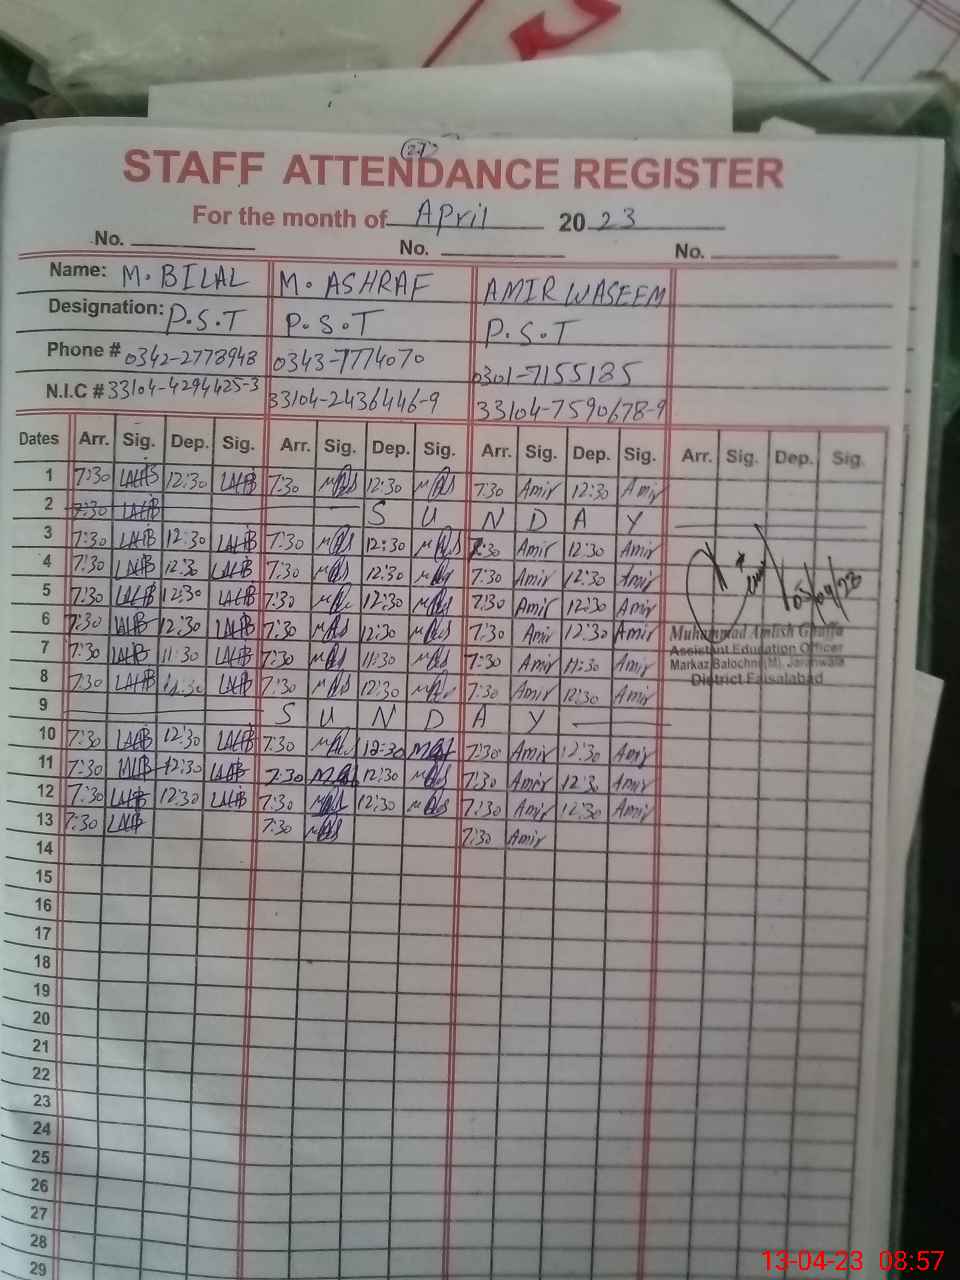 (27)
STAFF ATTENDANCE REGISTER
For the month of April 2023
No. No. No.
Name: M. BILAL M. ASHRAF AMIR WASEEM
Designation: P.S.T P.S.T P.S.T
Phone # 0342-2778948 0343-7774070 0301-7155185
N.I.C # 33104-4294425-3 33104-2436446-9 33104-7590678-9
Dates Arr. Sig. Dep. Sig. Arr. Sig. Dep. Sig. Arr. Sig. Dep. Sig. Arr. Sig. Dep. Sig.
1 7:30 12:30 7:30 12:30 7:30 Amir 12:30 Amir
2 7:30 S U N D A Y
3 7:30 12:30 7:30 12:30 7:30 Amir 12:30 Amir
4 7:30 12:30 7:30 12:30 7:30 Amir 12:30 Amir
5 7:30 12:30 7:30 12:30 7:30 Amir 12:30 Amir
05/04/23
6 7:30 12:30 7:30 12:30 7:30 Amir 12:30 Amir
Muhammad
Assistant Education Officer
7 7:30 11:30 7:30 11:30 7:30 Amir 11:30 Amir
Markaz Balochni (M), Jaranwala
District Faisalabad
8 7:30 7:30 12:30 7:30 Amir 12:30 Amir
9 S U N D A Y
10 7:30 12:30 7:30 12:30 7:30 Amir 12:30 Amir
11 7:30 12:30 7:30 12:30 7:30 Amir 12:30 Amir
12 7:30 12:30 7:30 12:30 7:30 Amir 12:30 Amir
13 7:30 7:30 7:30 Amir
14
15
16
17
18
19
20
21
22
23
24
25
26
27
28
29
13-04-23 08:57